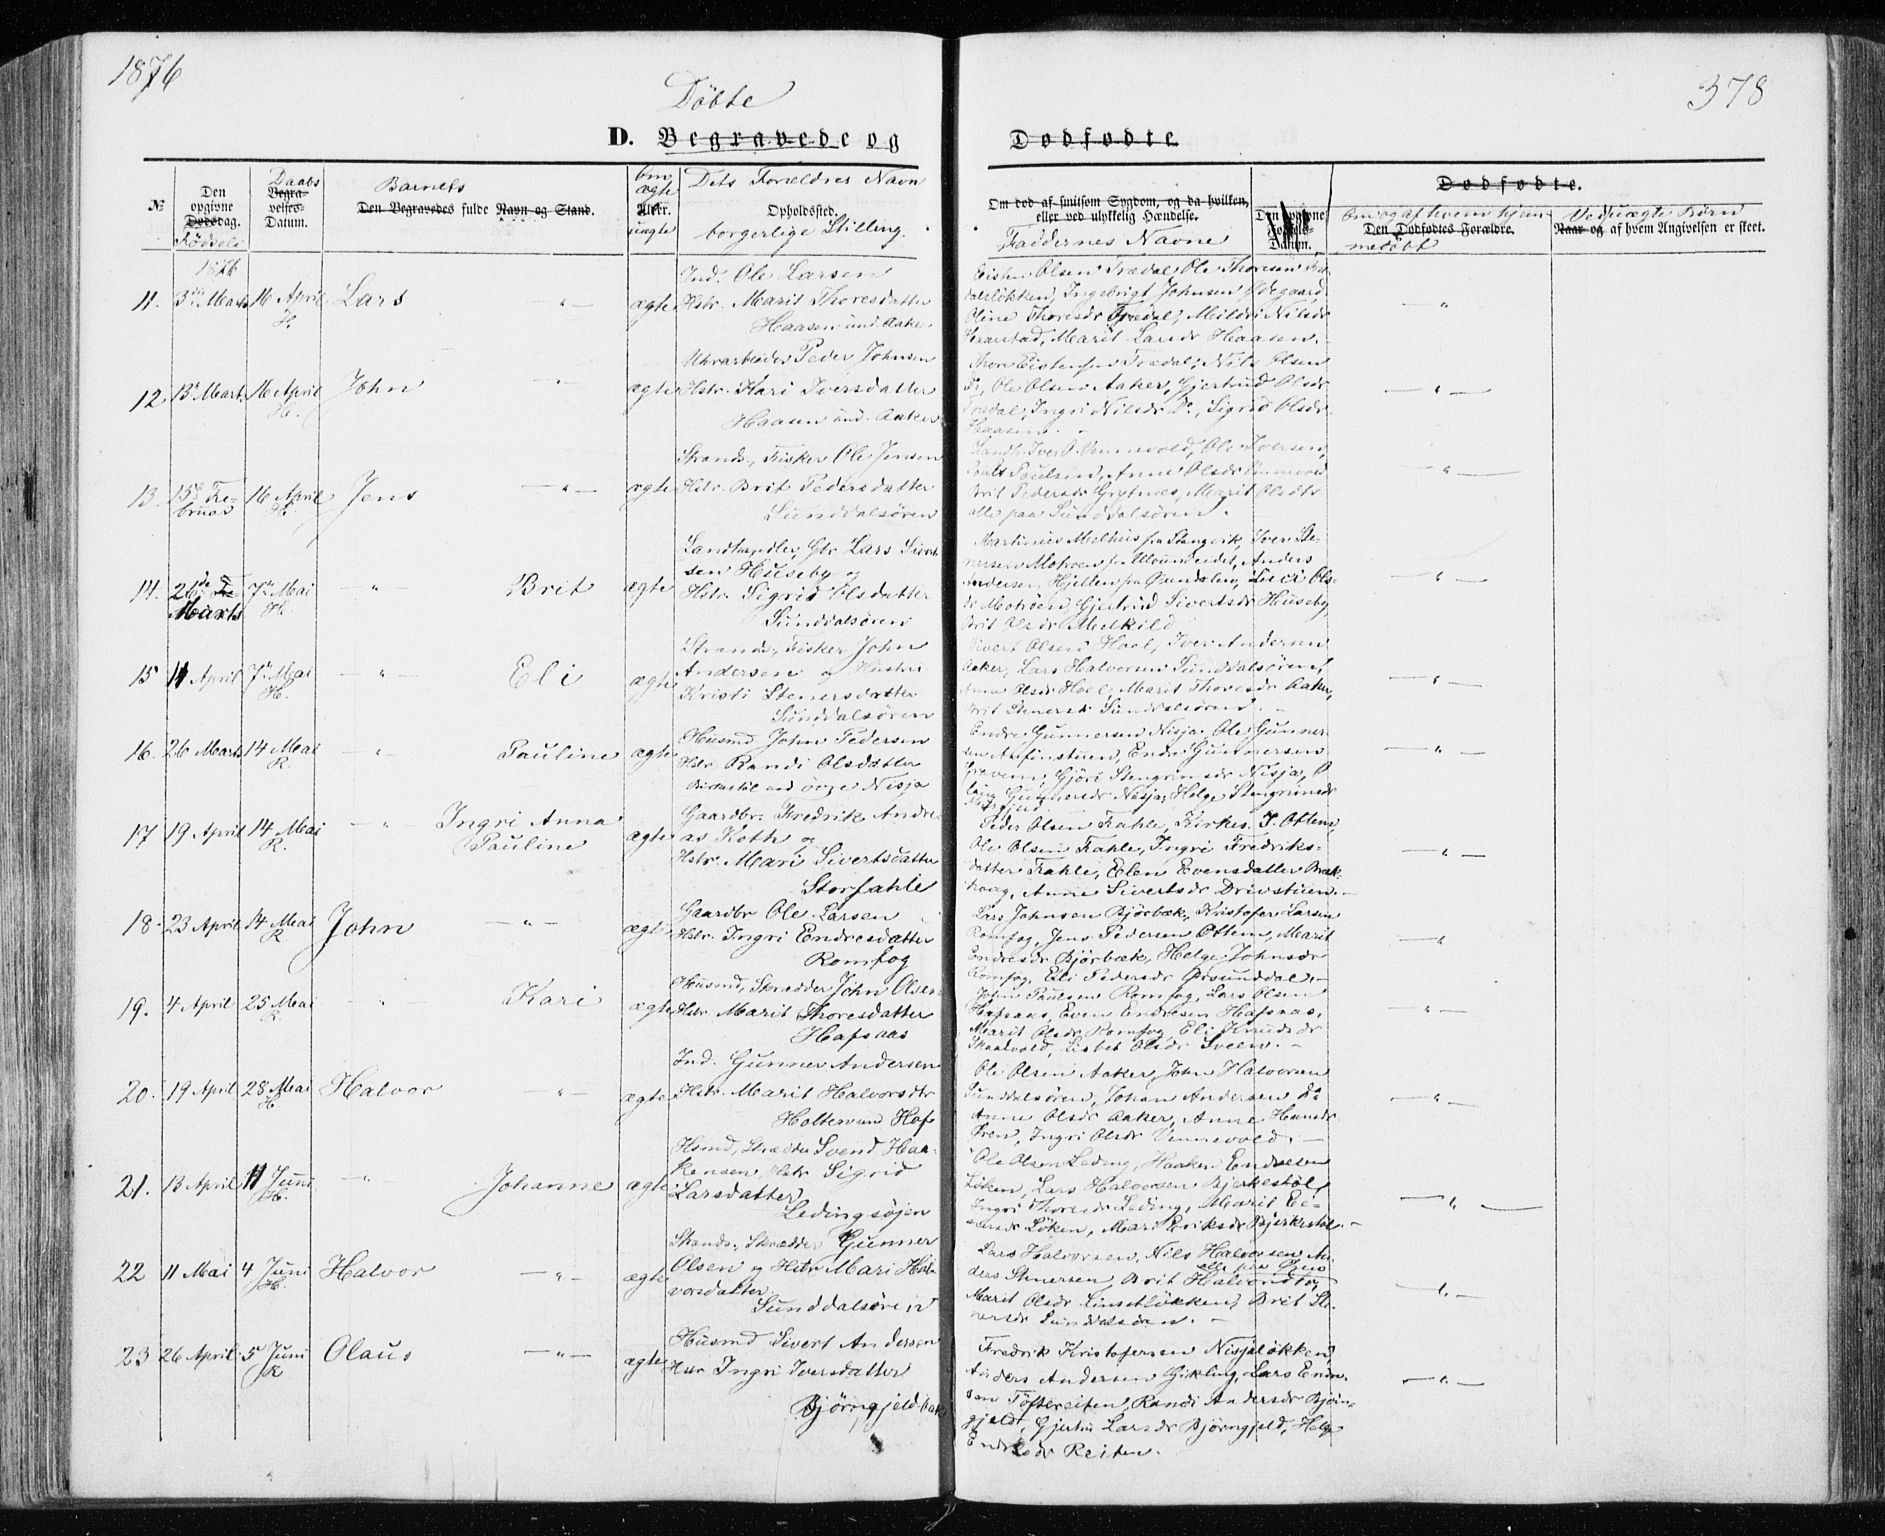 1876
Döbte
378
D. Begravede og Dødfødte.
№
Den opgivne Dødsdag.
Fødsels
Daabs
Begravelses-Datum.
Barnets
Den Begravedes fulde Navn og Stand.
om ægte
Alder.
uægte
Dets Forældres Navn
Opholdssted.
borgerlige Stilling.
Om død af smitsom Sygdom, og da hvilken,
eller ved ulykkelig Hændelse.
Faddernes Navne
Den opgivne Fødsels-Datum.
Dødfødte.
Om og af hvem hjem-
Den Dødfødtes Forældre.
medöbt
Ved uægte Börn
Naar og af hvem Angivelsen er skeet.
1876
11. 3die Marts 16 April H. Lars — " — ægte
Ind. Ole Larsen
Hstr. Marit Thoresdatter
Haasen und Aaker
Eisten Olsen Trædal, Ole Thoresen
Ingebrigt Johnsen Ødegaard
Oline Thoresdr Trædal, Mildri Nilsdr
Marit Larsdr Haasen.
12. 13de Marts 16 April H. John — " — ægte
Uhrarbeider Peder Johnsen
Hstr. Kari Iversdatter
Haasen und. Aaker
Thore Eistensen Trædal, Nils Olsen
Do, Ole Olsen Aaker, Gjertrud Olsdr
Trædal, Ingri Nilsdr Do, Sigrid Olsdr
Haasen.
13. 15de Februar 16 April H. Jens — " — ægte
Strands., Fisker Ole Jensen
Hstr. Brit Pedersdatter
Sunddalsören
Iver O. Vennevold, Ole Iversen,
Paulsen, Anne Olsdr Vennevold
Brit Pedersdr Grytnes, Marit Olsdtr
alle paa Sunddalsören.
14. 26de Marts 7de Mai H. — " — Brit ægte
Landhandler, Gbr Lars Sivert-
sen Huseby og
Hstr. Sigrid Olsdatter
Sunddalsören
Martinus Melhus fra Stangvik, Iver Ste-
nersen Motroen fra Anders
Andersen Hjellen fra Øxendalen, Ols-
dr Motröen, Gjertrud Sivertsdr Huseby,
Brit Olsdr Melkild
15 11 April 7de Mai H. — " — Eli ægte
Strands., Fisker John
Andersen og Hustru
Kristi Stenersdatter
Sunddalsören
Sivert Olsen Hoel, Iver Andersen
Aaker, Lars Halvorsen Sunddalsören,
Anne Olsdr Hoel, Marit Thoresdr Aaker,
Brit Stenersdr Sunddalsören.
16. 26 Marts 14 Mai R. — " — Pauline ægte
Husmd John Pedersen
Hstr. Randi Olsdatter
und övre Nisja
Endre Gunnersen Nisja, Ole Gunner-
sen Endre Gunnersen
Gjöri Stengrimsdr Nisja,
Gunnersdr Nisja, Helge Stengrimsdr
17 19 April 14 Mai R. — " — Ingri Anna Pauline ægte
Gaardbr. Fredrik Andre-
as Koth og
Hstr. Mari Sivertsdatter
Storfahle
Peder Olsen Fahle, Kirkes. J. Ottem,
Ole Olsen Fahle, Ingri Fredriks-
datter Fahle, Elen Evensdatter Bræk-
haug, Anne Sivertsdr Drivstuen.
18. 23 April 14 Mai R. John — " — ægte
Gaardbr Ole Larsen
Hstr. Ingri Endresdatter
Romfog
Lars Johnsen Björbæk, Kristofer Larsen
Romfog, Jens Pedersen Ottem, Marit
Endresdr Björbæk, Helge Johnsdr
Romfog, Eli Pedersdr Grödal.
19. 4 April 25 Mai R. — " — Kari ægte
Husmd, Skrædder John Olsen
Hstr. Marit Thoresdatter
Hafsaas
John Paulsen Romfog, Lars Olsen
Hafsaas, Even Endresen Hafsaas,
Marit Olsdr Romfog, Eli Knudsdr
Skaalvold, Lisbet Olsdr Sveen.
20. 19 April 28 Mai H. Halvor — " — ægte
Ind. Gunner Andersen
Hstr. Marit Halvorsdtr
Holten und Hafs
Ole Olsen Aaker, John Halvorsen
Sunddalsören, Johan Andersen do
Anne Olsdr Aaker, Anne Hansdr
Ören, Ingri Olsdr Vennevold.
21. 13 April 11 Juni H. — " — Johanne ægte
Hsmd, Skrædder Svend Haa-
kensen Hstr Sigrid
Larsdatter,
Ledingsøjen
Ole Olsen Leding, Haaken Endresen
Löken, Lars Halvorsen Bjerkestöl,
Ingri Thoresdr Leding, Marit Ei-
narsdr Löken, Mari Eriksdr Bjerkestöl.
22 11 Mai 4 Juni H. Halvor — " — ægte
Strands., Skrædder Gunner
Olsen og Hstr Mari Hal-
vorsdatter,
Sunddalsören
Lars Halvorsen, Nils Halvorsen An-
ders Stenersen, Brit Halvorsdtr,
Marit Olsdr Brit Ste-
nersdr Sunddalsören.
23 26 April 5 Juni R Olaus — " — ægte
Husmd Sivert Andersen
Hstr Ingri Iversdatter
Bjørngjeld
Fredrik Kristofersen Nisjaløkken,
Anders Andersen Gikling, Lars Endre-
sen Töftereiten, Randi Andersdr Björn-
gjeld, Gjertru Larsdr Björngjeld, Helge
Endresdr Reiten.